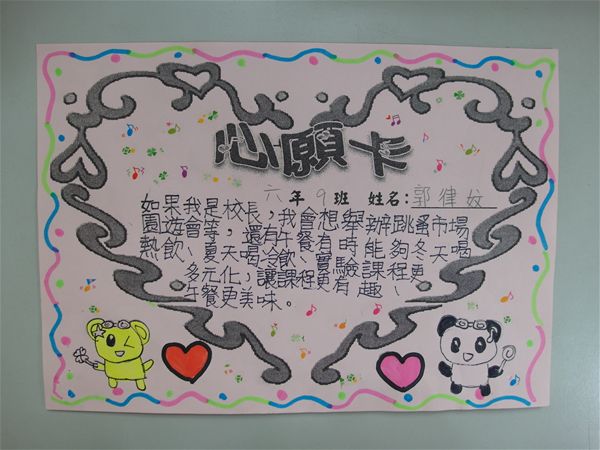 心願卡
六年9班 姓名:郭律妏
如果我是校長,我會想舉辦跳蚤市場、
園遊會等,還有午餐有時能夠冬天喝
熱飲、夏天喝冷飲,實驗課程更
多元化,讓課程更有趣、
午餐更美味。